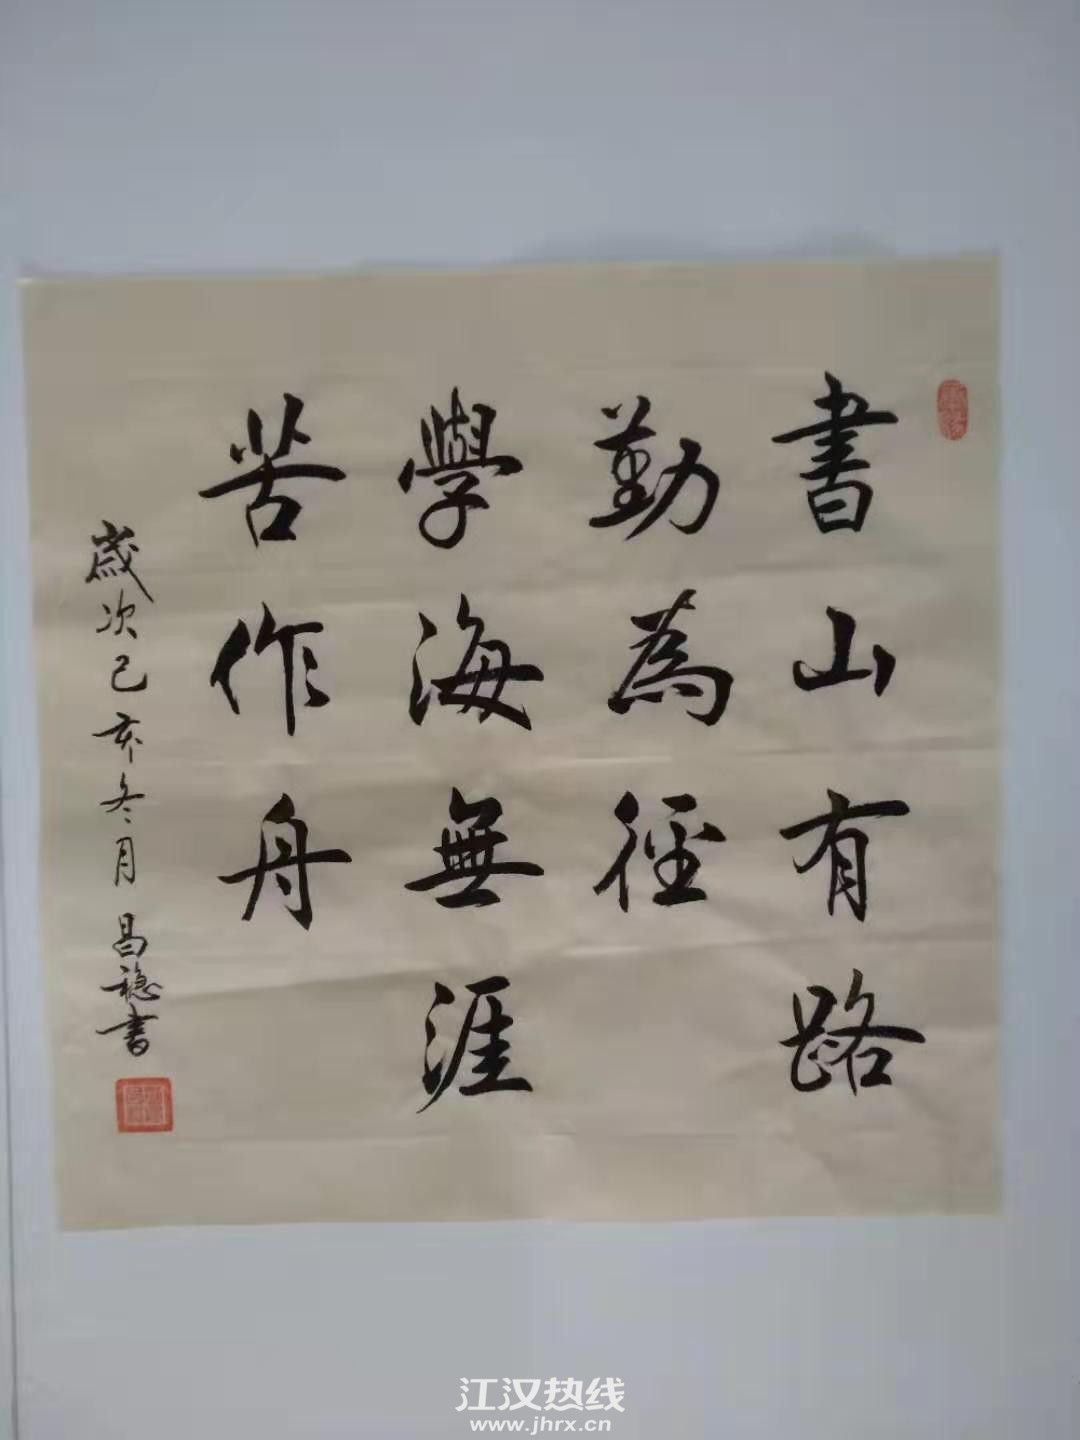 書山有路
勤為徑
學海無涯
苦作舟
歲次己亥冬月昌稳書
江汉热线
www.jhrx.cn